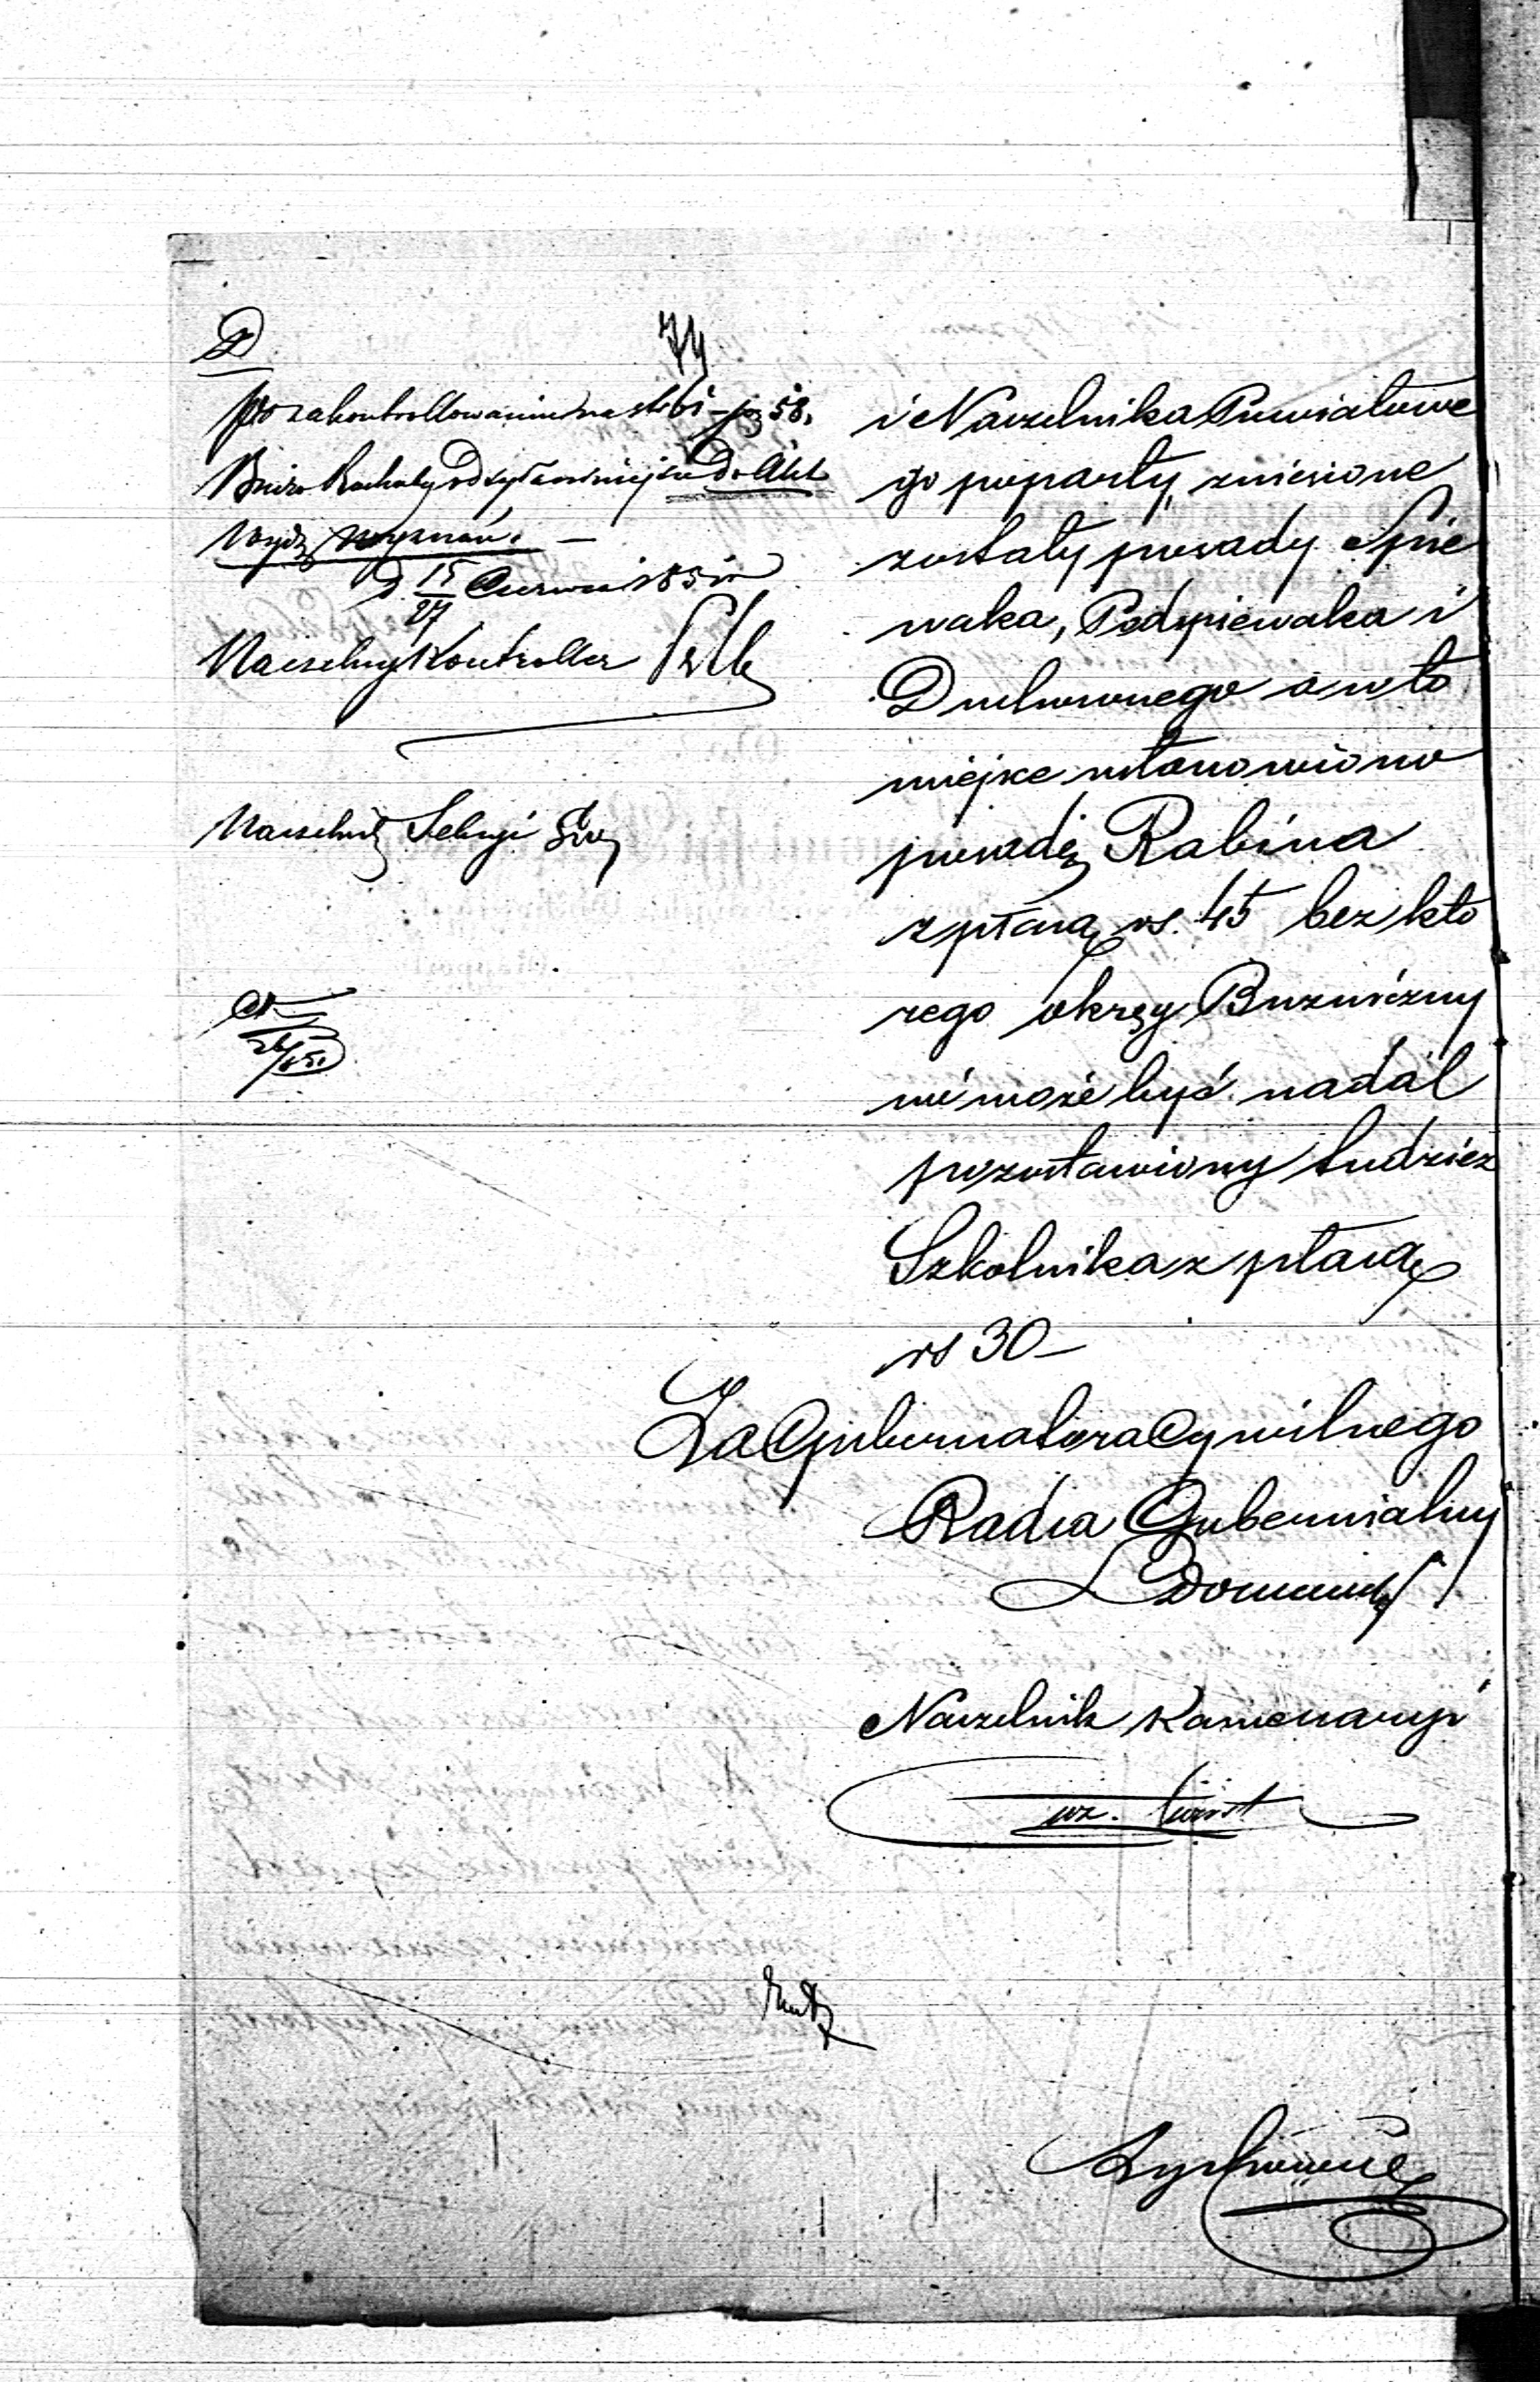 74
po zakontrollowaniu na str 61 – poz 58.
Biuro Rachuby odsyła niniejsze Do Akt
Wydz Wyznań. –
d. 15/27 Czerwca 185
Naczelny Kontroller
Naczelnik Sekcji
i Naczelnika Powiatowe
go poparty, zniesione
zostały posady Spie
waka, Podspiewaka i
Duchownego a w to
miejsce ustanowiono
posadę Rabina
z płacą rs. 45 bez któ
rego okręg Bużniczny
nie może być nadal
pozostawiony tudzież
Szkolnika z płacą
rs 30 –
Za Gubernatora Cywilnego
Radca Gubernialny
Naczelnik Kancellaryi
wz.